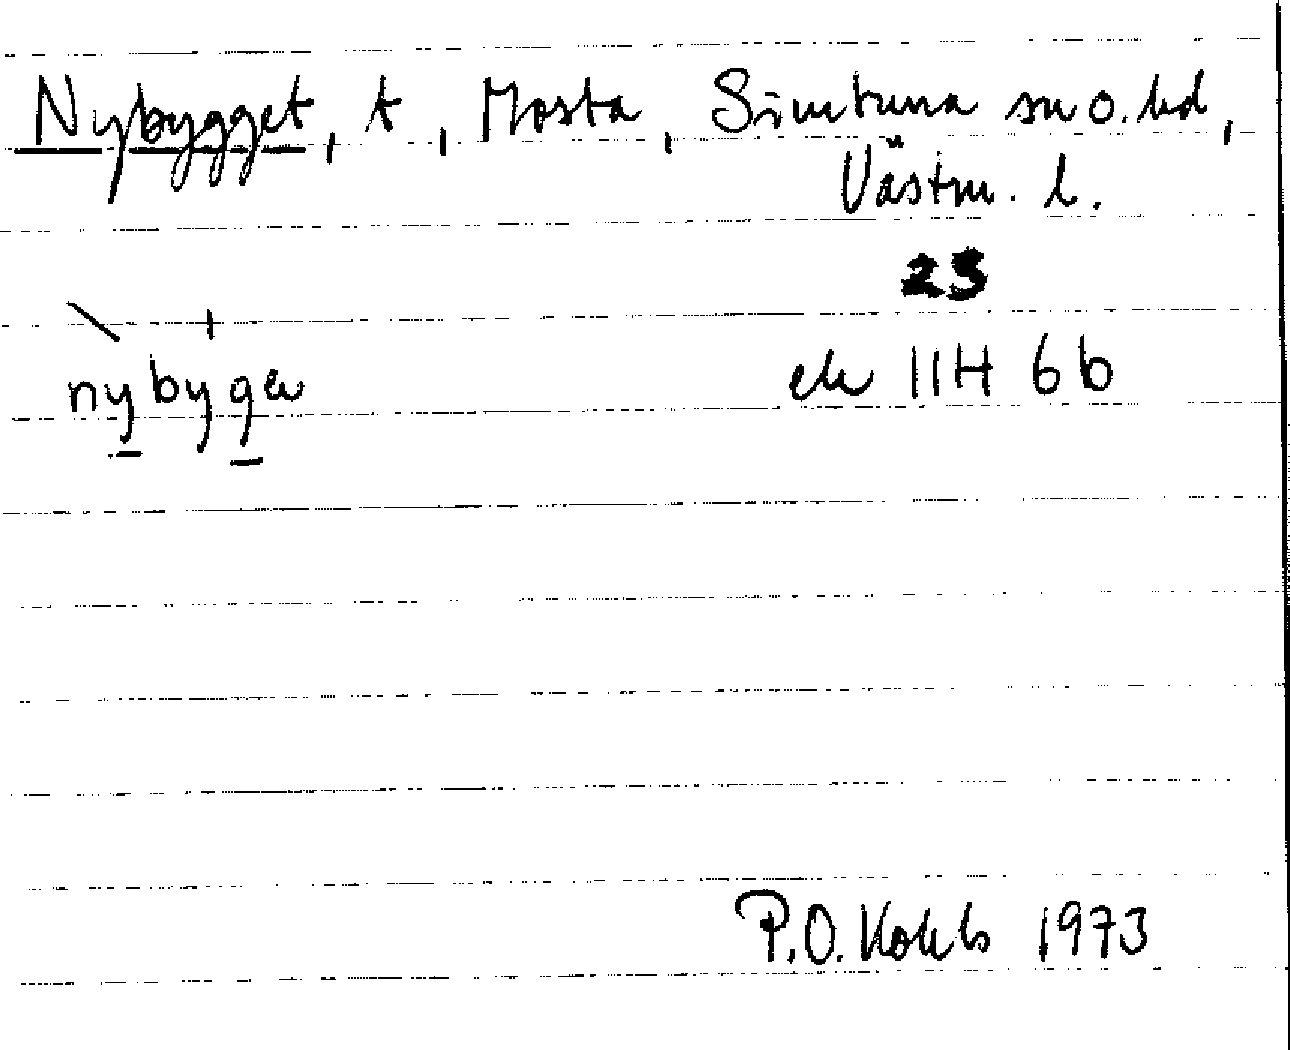 Nybygget, t, Mosta, Simtuna sn o. hd,
Västm. l.
23
nybyga
ek 11H 6b
P.O. 1973